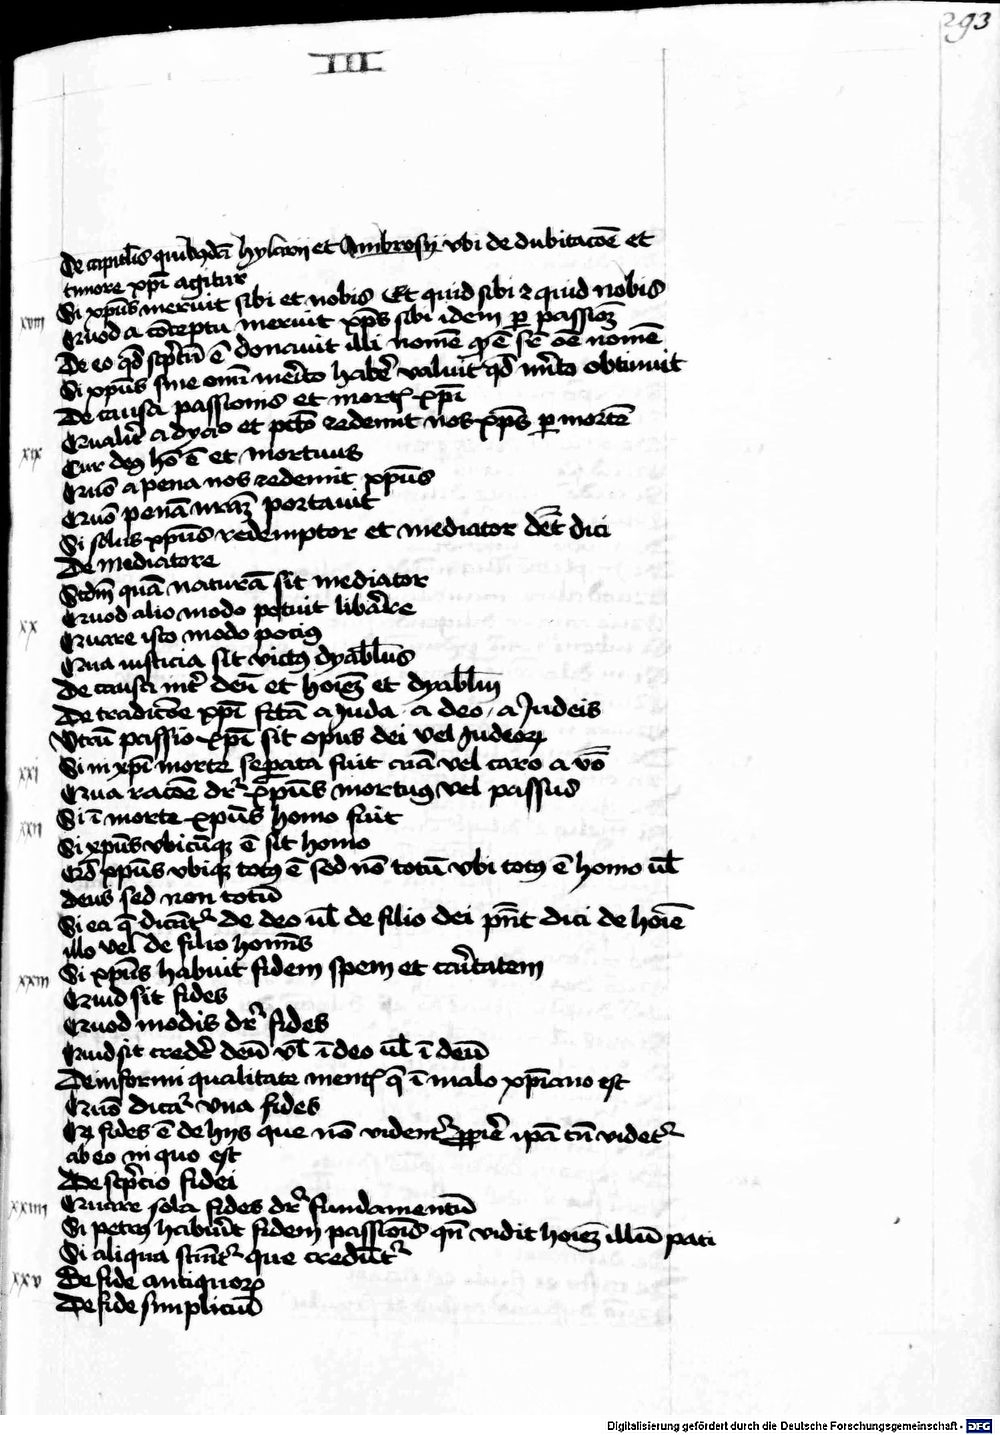 293
III
De capitulis quibusdā hylarii et Ambrosij vbi de dubitacōe et
timore xp̄i agitur
xviii Si xp̄us meruit sibi et nobis Et quid sibi ⁊ quid nobis
Quod a cōceptu meruit xp̄s sibi idem per passionē
De eo qd̄ scptū ē donauit illi nomē qd̄ ē sr̄ oē nomē
Si xp̄us sine omī mērito habē valuit qd̄ mr̄ito obtinuit
De causa passionis et mortis xp̄i
xix Qualit̄ a dyao et pctō redemit nos xp̄s per mortē
Cur deus hō ē et mortuus
Quō a pena nos redemit xp̄us
Quō penā nrām portauit
Si solus xp̄us redemptor et mediator dēt dici
De mediatore
Scdm̄ quā naturā sit mediator
xx Quod alio modo potuit libāre
Quare isto modo pocius
Qua iusticia sit victus dyabl̄us
De causa int̄ deū et hoīem et dyabl̄m
De tradicōe xp̄i fctā a Juda . a deo . a Judeis
Vtrū passio xp̄i sit opus dei vel Judeorum
xxi Si in xp̄i morte separata fuit aīa vel caro a vō
Qua racōe dr̄ xp̄us mortuus vel passus
xxii Si ī morte xp̄us homo fuit
Si xp̄us vbicūque ē sit homo
Qd̄ xp̄us vbique totus ē sed nō totū vbi totus ē homo ul̄
deus sed non totū
Si ea q̄ dicūtr de deo ul̄ de filio dei pn̄t dici de hoīe
illo vel de filio hominis
xxiii Si xp̄us habuit fidem spem et caritatem
Quid sit fides
Quod modis dr̄ fides
Quid sit credē deū vl̄ ī deo ul̄ ī deū
De informi qualitate mentis q̄ ī malo xp̄iano est
Quō dicatr vna fides
Qd̄ fides ē de hijs que nō videntr propriē ipā tn̄ videtr
ab eo in quo est
De scptio fidei
xxiiii Quare sola fides dr̄ fundamentū
Si petrus habuit fidem passionis qn̄ vidit hoīem illū pati
Si aliqua sciūtr que credūtr
xxv De fide antiquorum
De fide simpliciū
Digitalisierung gefördert durch die Deutsche Forschungsgemeinschaft - DFG